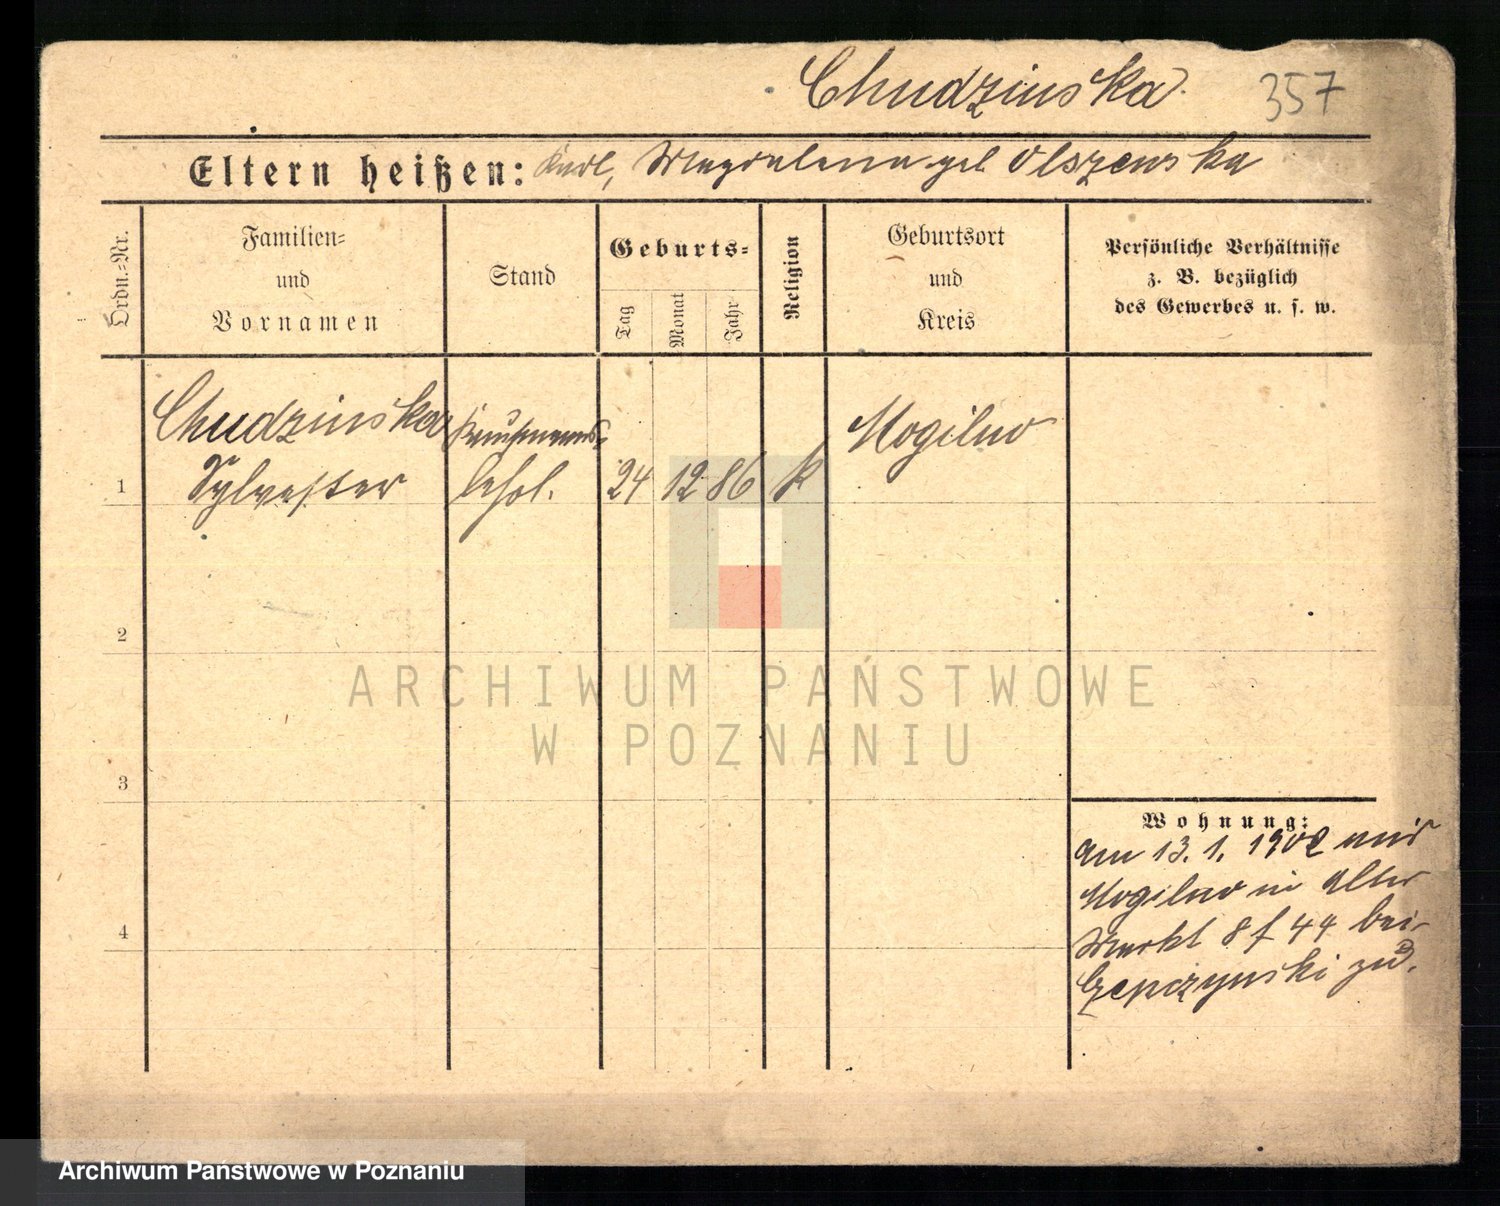 Chudzinska. 357
Eltern heißen: Karl, Magdalena geb Olszewska
Ordn.-Nr.
Familien-
und
Vornamen
Stand
Geburts-
Tag
Monat
Jahr
Religion
Geburtsort
und
Kreis
Persönliche Verhältnisse
z. B. bezüglich
des Gewerbes u. s. w.
Chudzinska Kaufmanns- Mogilno
1 Sylvester lehrl. 24 12 86 k
2
3
4
Wohnung:
Am 13. 1. 1902 aus
Mogilno in Alter
Markt 8 f 44 bei
Czepczynski zu
ARCHIWUM PAŃSTWOWE
W POZNANIU
Archiwum Państwowe w Poznaniu